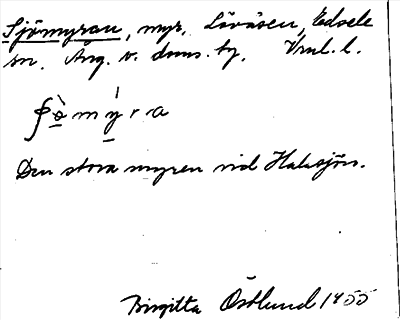 Sjömyran, myr, Lövåsen, Edsele
sn. Ång. v. doms. tg. Vnl. l.
ʃö̀mýra
Den stora myren vid Halasjön.
Birgitta Östlund 1955